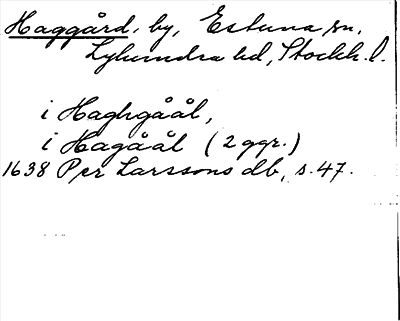 Haggård, by, Estuna sn,
Lyhundra hd, Stockh. l.
i Haghgåål,
i Hagåål (2 ggr.)
1638 Per Larssons db, s. 47.